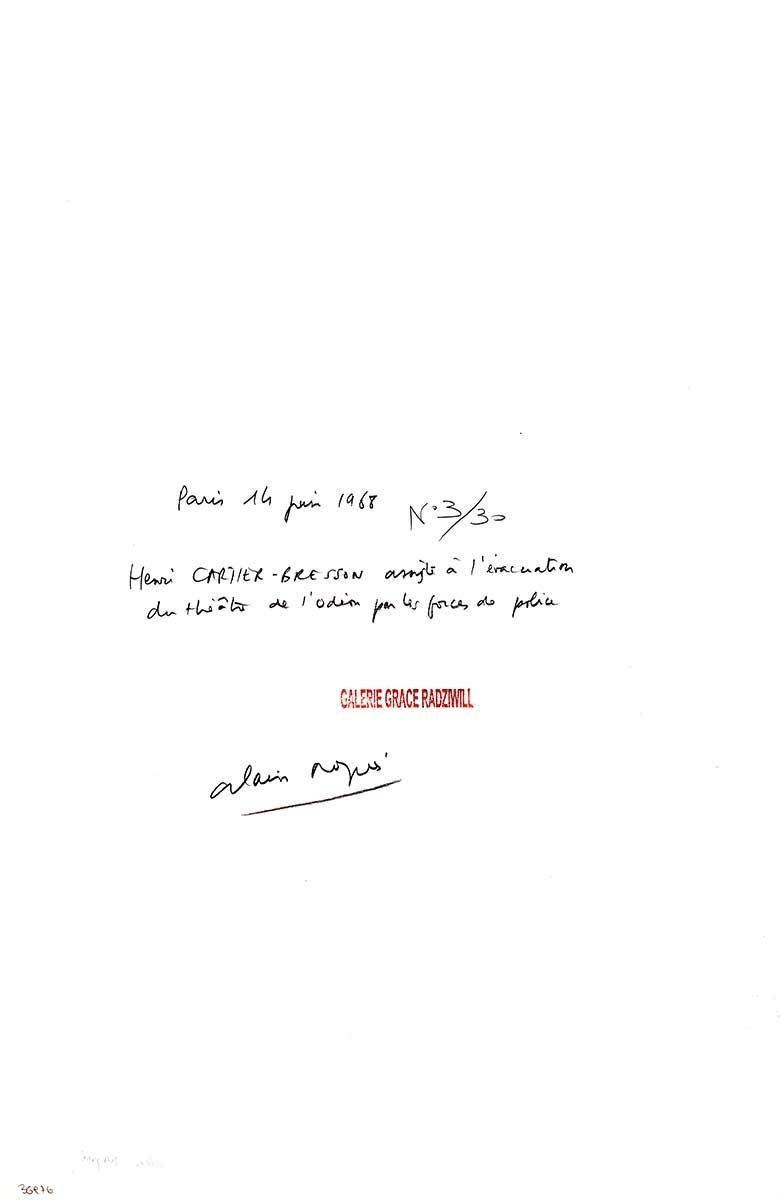 Paris 14 juin 1968 N°3/30
Henri CARTIER-BRESSON assiste à l'évacuation
du théâtre de l'Odéon par les forces de police
GALERIE GRACE RADZIWILL
alain